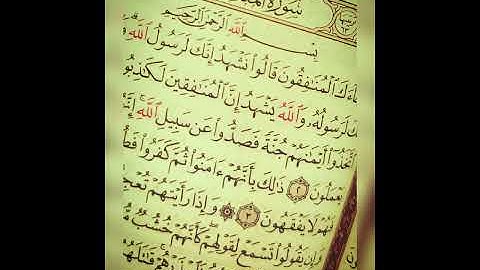 سُورَةُ
بِسْمِ ٱللَّهِ ٱلرَّحْمَٰنِ ٱلرَّحِيمِ
ٱلْمُنَٰفِقُونَ قَالُوا۟ نَشْهَدُ إِنَّكَ لَرَسُولُ ٱللَّهِ
لَرَسُولُهُۥ وَٱللَّهُ يَشْهَدُ إِنَّ ٱلْمُنَٰفِقِينَ لَكَٰذِبُو
أَيْمَٰنَهُمْ جُنَّةً فَصَدُّوا۟ عَن سَبِيلِ ٱللَّهِ
يَعْمَلُونَ ٢ ذَٰلِكَ بِأَنَّهُمْ ءَامَنُوا۟ ثُمَّ كَفَرُوا۟ فَطُ
فَهُمْ لَا يَفْقَهُونَ ٣ وَإِذَا رَأَيْتَهُمْ تُعْجِ
وَإِن يَقُولُوا۟ تَسْمَعْ لِقَوْلِهِمْ كَأَنَّهُمْ خُشُبٌ